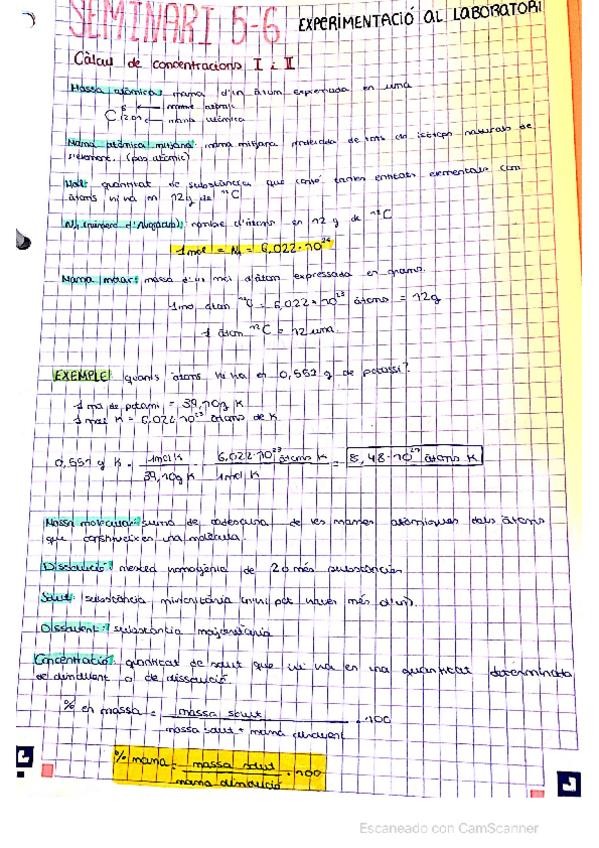 SEMINARI 5-6 EXPERIMENTACIÓ AL LABORATORI
Càlcul de concentracions I i II
Massa atòmica: massa d'un àtom expressada en uma
C
Massa atòmica mitjana: massa mitjana de tots els isòtops naturals de
l'element. (pes atòmic)
Mol: quantitat de substància que conté tantes entitats elementals com
àtoms hi ha en 12 g de ¹²C
NA (número d'Avogadro): nombre d'àtoms en 12 g de ¹²C
1 mol = NA = 6,022·10
Massa molar: massa d'un mol d'àtom expressada en grams.
= 6,022·10²³ àtoms = 12g
1 àtom ¹²C = 12 uma.
EXEMPLE: quants àtoms hi ha en 0,552 g de potassi?
1 mol de potassi = 39,10g K
1 mol K = 6,022·10²³ àtoms de K
g K · 1mol K / 39,10g K · 6,022·10²³ àtoms K / 1mol K = àtoms K
Massa molecular: suma de de les masses atòmiques dels àtoms
que constitueixen una molècula.
Dissolució: mescla homogènia de 2 o més substàncies
Solut: substància minoritària (hi pot haver més d'un).
Dissolvent: substància majoritària
Concentració: quantitat de solut que hi ha en una quantitat determinada
de dissolvent o de dissolució.
% en massa = massa solut / massa solut + massa dissolvent · 100
% massa = massa solut / massa dissolució · 100
Escaneado con CamScanner